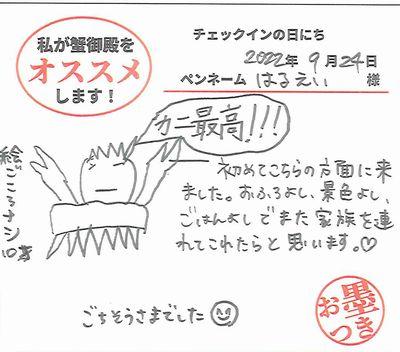 私が蟹御殿を
オススメ
します！
チェックインの日にち
2022年 9月24日
ペンネーム はるえい 様
カニ最高!!!
初めてこちらの方面に来
ました。おふろよし、景色よし、
ごはんよしでまた家族を連
れてこれたらと思います。♡
絵ごころナシ
ごちそうさまでした
お墨つき